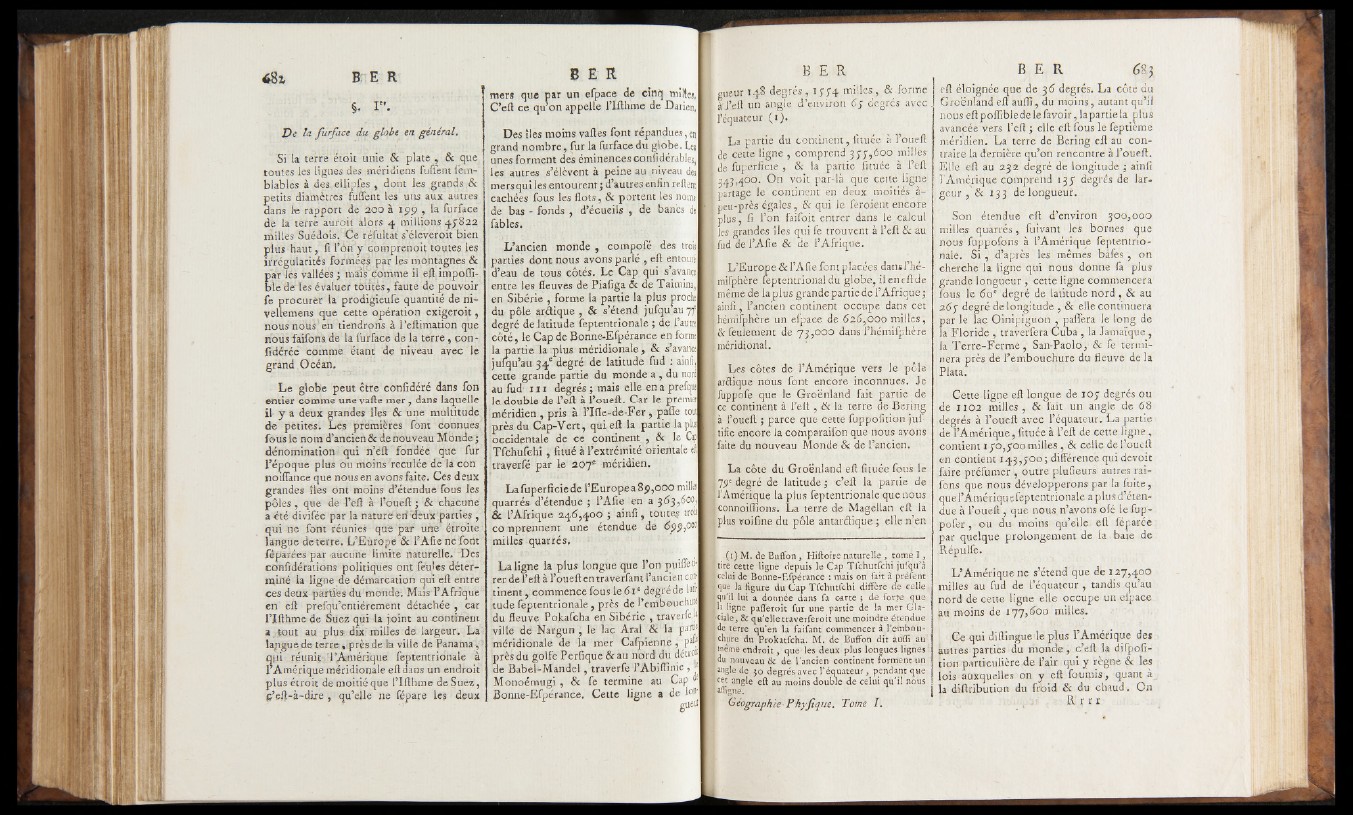 682 B E R
§. Ier.
De la surface du globe en général.
Si la terre étoit unie & plate, & que
toutes les lignes des méridiens fussent sem-
blables à des ellipses, dont les grands &
petits diamètres fussent les uns aux autres
dans le rapport de 200 à 199, la surface
de la terre auroit alors 4 millions 45822
milles Suédois. Ce résultat s'éleveroit bien
plus haut, si l'on y comprenoit toutes les
irrégularités formées par les montagnes &
par les vallées; mais comme il est impossi-
ble de les évaluer toutes, faute de pouvoir
se procurer la prodigieuse quantité de ni-
vellemens que cette opération exigeroit,
nous nous en tiendrons à l'estimation que
nous faisons de la surface de la terre, con-
sidérée comme étant de niveau avec le
grand Océan.
Le globe peut être considéré dans son
entier comme une vaste mer, dans laquelle
il y a deux grandes îles & une multitude
de petites. Les premières sont connues
sous le nom d'ancien & de nouveau Monde;
dénomination qui n'est fondée que sur
l'époque plus ou moins reculée de la con
noissance que nous en avons faite. Ces deux
grandes îles ont moins d'étendue sous les
pôles, que de l'est à l'ouest; & chacune
a été divisée par la nature en deux parties,
qui ne sont réunies que par une étroite
langue de terre. L'Europe & l'Asie ne sont
séparées par aucune limite naturelle. Des
considérations politiques ont seules déter-
miné la ligne de démarcation qui est entre
ces deux parties du monde. Mais l'Afrique
en est presqu'entiérement détachée, car
l'Isthme de Suez qui la joint au continent
a tout au plus dix milles de largeur. La
langue de terre, près de la ville de Panama,
qui réunit l'Amérique septentrionale à
l'Amérique méridionale est dans un endroit
plus étroit de moitié que l'Isthme de Suez,
c'est-à-dire, qu'elle ne sépare les deux
B E R
mers que par un espace de cinq milles.
C'est ce qu'on appelle l'Isthme de Darien.
Des îles moins vastes sont répandues, en
grand nombre, sur la surface du globe. Les
unes forment des éminences considérables,
les autres s'élèvent à peine au niveau des
mers qui les entourent; d'autres enfin restent
cachées sous les flots, & portent les noms
de bas-fonds, d'écueils, de bancs de
sables.
L'ancien monde, composé des trois
parties dont nous avons parlé, est entouré
d'eau de tous côtés. Le Cap qui s'avance
entre les fleuves de Piasiga & de Taimina,
en Sibérie, forme la partie la plus proche
du pôle arctique, & s'étend jusqu'au 77
degré de latitude septentrionale; de l'autre
côté, le Cap de Bonne-Espérance en forme
la partie la plus méridionale, & s'avance
jusqu'au 34e degré de latitude sud: ainsi,
cette grande partie du monde a, du nord
au sud 111 degrés; mais elle en a presque
le double de l'est à l'ouest. Car le premier
méridien, pris à l'Isle-de-Fer, passe tout
près du Cap-Vert, qui est la partie la plus
occidentale de ce continent, & le Cap
Tschuschi, situé à l'extrémité orientale est
traversé par le 207e méridien.
La superficie de l'Europe a 89,000 milles
quarrés d'étendue; l'Asie en a 363,600,
& l'Afrique 246,400; ainsi, toutes trois
comprennent une étendue de 699,000
milles quarrés.
La ligne la plus longue que l'on puisse ti-
rer de l'est à l'ouest en traversant l'ancien con-
tinent, commence sous le 61e degré de lati-
tude septentrionale, près de l'embouchure
du fleuve Pokascha en Sibérie, traverse la
ville de Nargun, le lac Aral & la partie
méridionale de la mer Caspienne, passe
près du golfe Persique & au nord du détroit
de Babel-Mandel, traverse l'Abissinie, le
Monoémugi, & se termine au Cap de
Bonne-Espérance. Cette ligne a de lon-
gueur
B E R
gueur 148 degrés, 1554 milles, & forme
à l'est un angle d'environ 65 degrés avec
l'équateur (1).
La partie du continent, située à l'ouest
de cette ligne, comprend 355,600 milles
de superficie, & la partie située à l'est
343,400. On voit par-là que cette ligne
partage le continent en deux moitiés à-
peu-près égales, & qui le seroient encore
plus, si l'on faisoit entrer dans le calcul
les grandes îles qui se trouvent à l'est & au
sud de l'Asie & de l'Afrique.
L'Europe & l'Asie sont placées dans l'hé-
misphère septentrional du globe, il en est de
même de la plus grande partie de l'Afrique;
ainsi, l'ancien continent occupe dans cet
hémisphère un espace de 626,000 milles,
& seulement de 73,000 dans l'hémisphère
méridional.
Les côtes de l'Amérique vers le pôle
arctique nous sont encore inconnues. Je
suppose que le Groënland fait partie de
ce continent à l'est, & la terre de Bering
à l'ouest; parce que cette supposition jus
tifie encore la comparaison que nous avons
faite du nouveau Monde & de l'ancien.
La côte du Groënland est située sous le
79e degré de latitude; c'est la partie de
l'Amérique la plus septentrionale que nous
connoissions. La terre de Magellan est la
plus voisine du pôle antarctique; elle n'en
(1) M. de Buffon, Histoire naturelle, tome I,
tire cette ligne depuis le Cap Tschutschi jusqu'à
celui de Bonne-Espérance: mais on fait à présent
que la figure du Cap Tschutschi diffère de celle
qu'il lui a donnée dans sa carte; de sorte que
la ligne passeroit sur une partie de la mer Gla-
ciale, & qu'elle traverseroit une moindre étendue
de terre qu'en la faisant commencer à l'embou-
chure du Prokatscha. M. de Buffon dit aussi au
même endroit, que les deux plus longues lignes
du nouveau & de l'ancien continent forment un
angle de 30 degrés avec l'équateur, pendant que
cet angle est au moins double de celui qu'il nous
assigne.
Géographie-Physique. Tome I.
B E R 683
est éloignée que de 36 degrés. La côte du
Groënland est aussi, du moins, autant qu'il
nous est possible de le savoir, la partie la plus
avancée vers l'est; elle est sous le septième
méridien. La terre de Bering est au con-
traire la dernière qu'on rencontre à l'ouest.
Elle est au 232 degré de longitude; ainsi
l'Amérique comprend 135 degrés de lar-
geur, & 133 de longueur.
Son étendue est d'environ 300,000
milles quarrés, suivant les bornes que
nous supposons à l'Amérique septentrio-
nale. Si, d'après les mêmes bâses, on
cherche la ligne qui nous donne sa plus
grande longueur, cette ligne commencera
sous le 60e degré de latitude nord, & au
265 degré de longitude, & elle continuera
par le lac Oinipiguon, passera le long de
la Floride, traversera Cuba, la Jamaïque,
la Terre-Ferme, San-Paolo, & se termi-
nera près de l'embouchure du fleuve de la
Plata.
Cette ligne est longue de 105 degrés ou
de 1102 milles, & fait un angle de 68
degrés à l'ouest avec l'équateur. La partie
de l'Amérique, située à l'est de cette ligne,
contient 150,500 milles, & celle de l'ouest
en contient 143,500; différence qui devoit
faire présumer, outre plusieurs autres rai-
sons que nous développerons par la suite,
que l'Amérique septentrionale a plus d'éten-
due à l'ouest, que nous n'avons osé le sup-
poser, ou du moins qu'elle est séparée
par quelque prolongement de la baie de
Répulse.
L'Amérique ne s'étend que de 127,400
milles au sud de l'équateur, tandis qu'au
nord de cette ligne elle occupe un espace
au moins de 177,600 milles.
Ce qui distingue le plus l'Amérique des
autres parties du monde, c'est la disposi-
tion particulière de l'air qui y règne & les
lois auxquelles on y est soumis, quant à
la distribution du froid & du chaud. On
R r r r